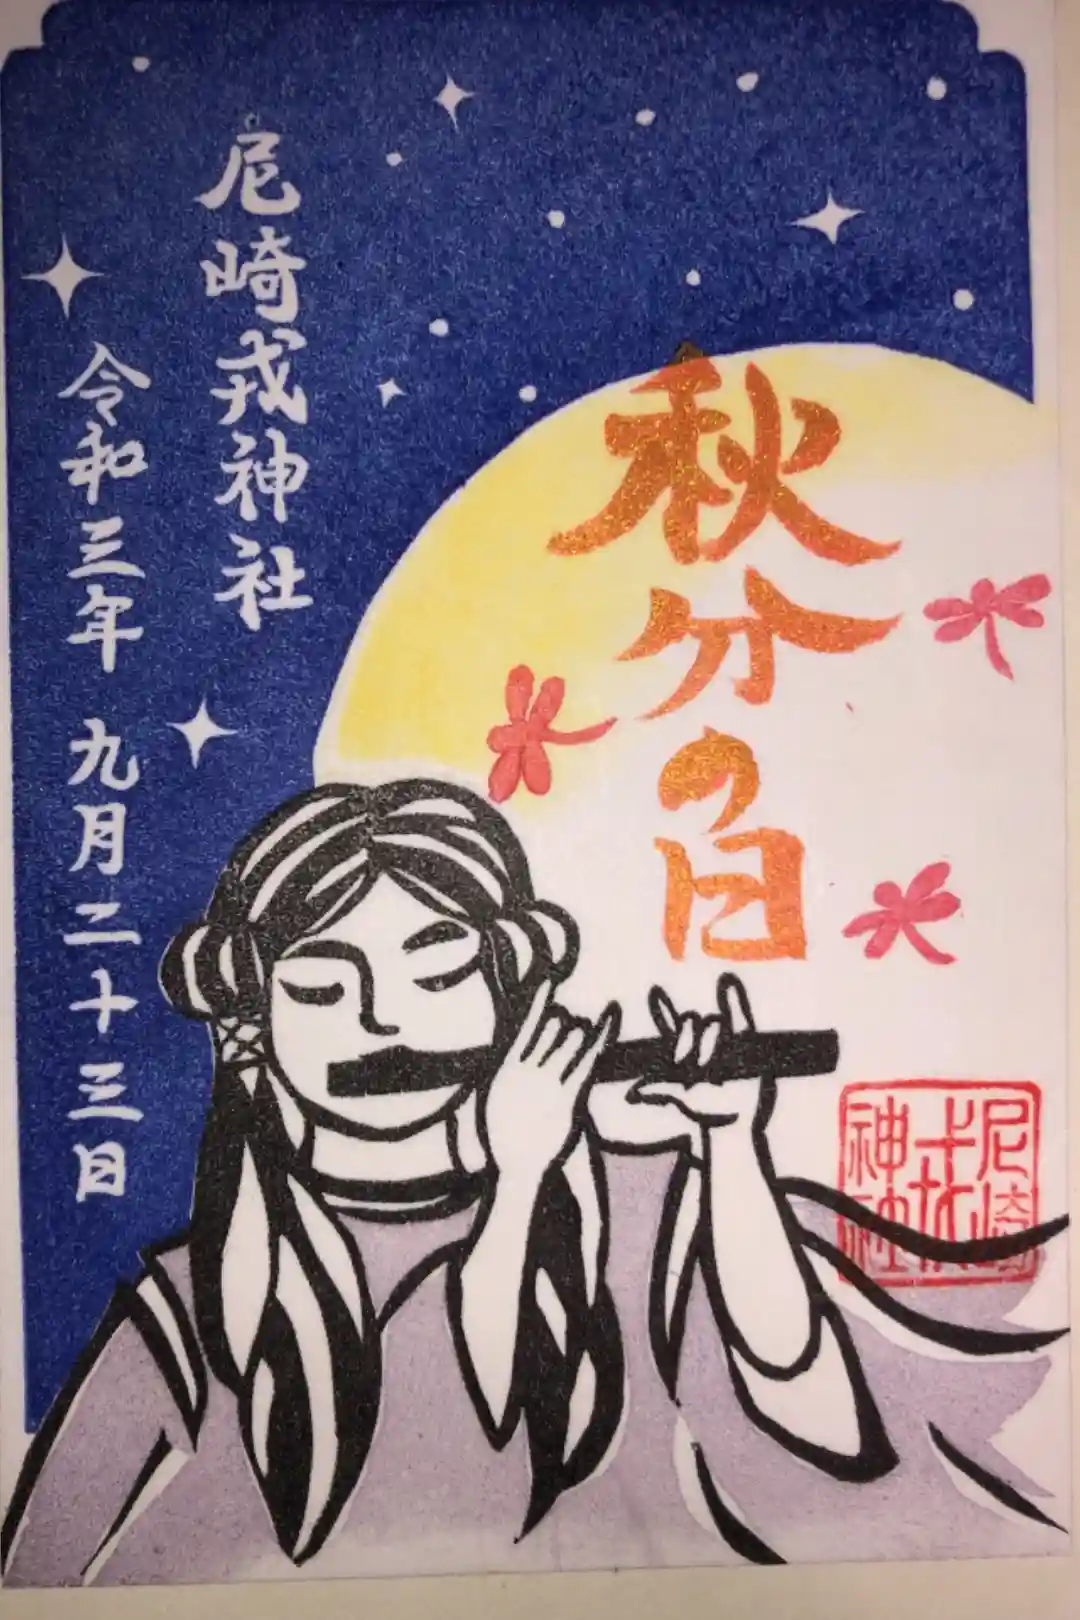 秋分の日
尼崎戎神社
令和三年 九月二十三日
尼崎
戎
神社